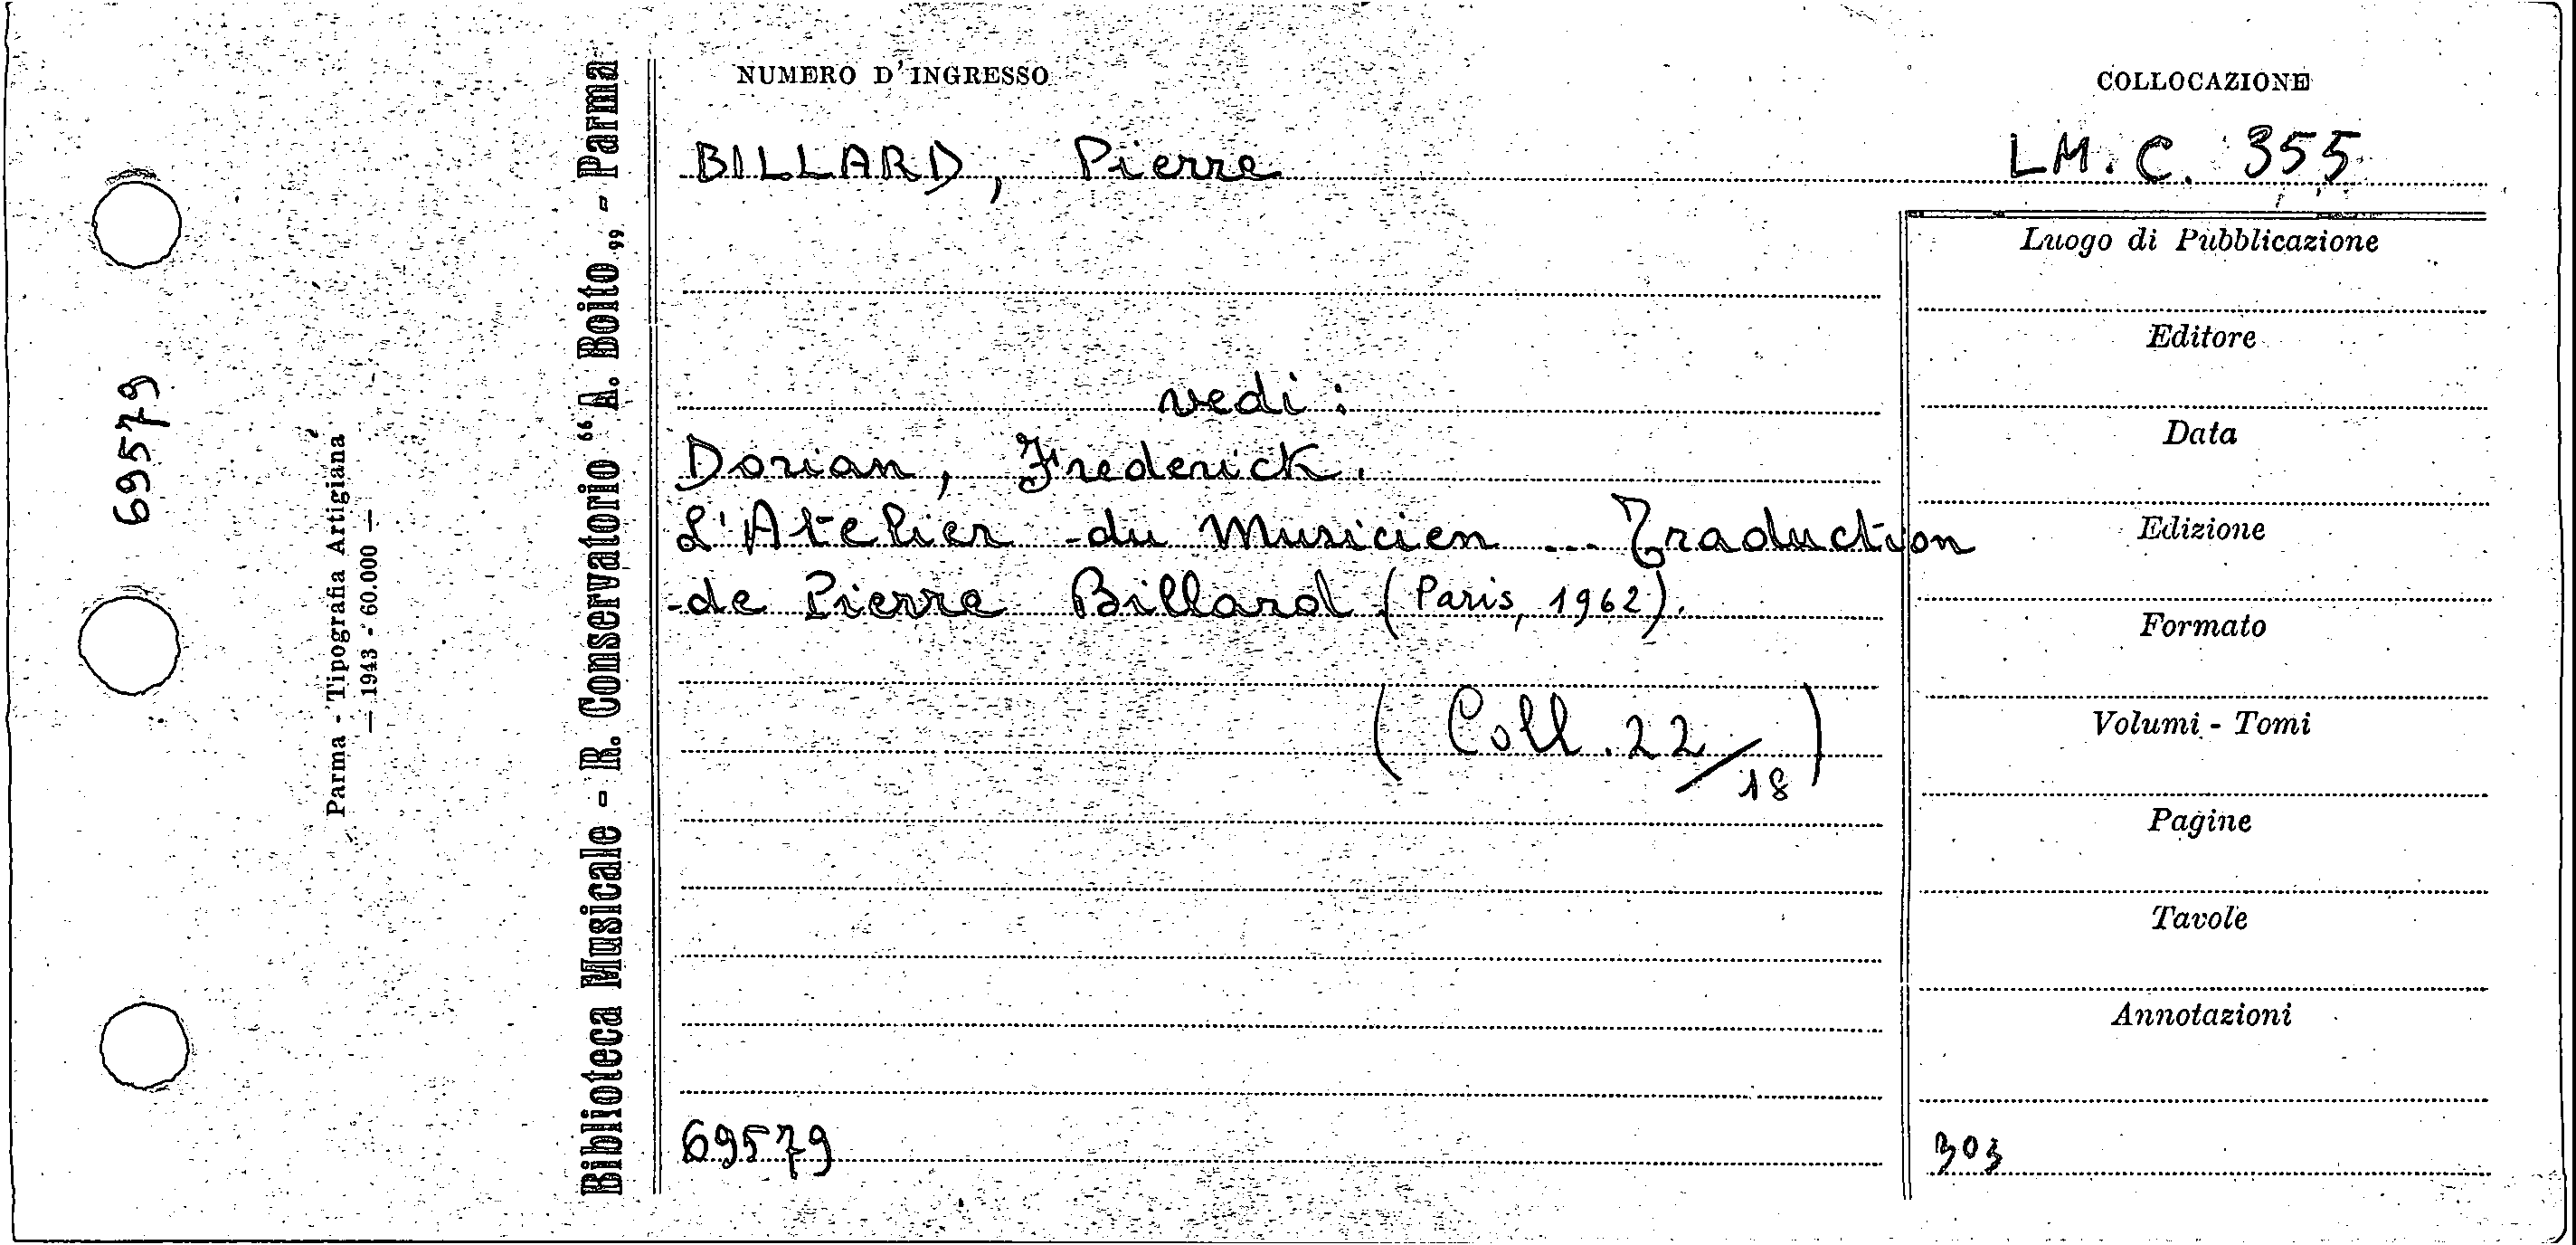 69579
Parma - Tipografia Artigiana
— 1943 - 60.000 —
Biblioteca Musicale - R. Conservatorio "A. Boito„ - Parma
NUMERO D'INGRESSO
COLLOCAZIONE
BILLARD, Pierre
LM. C. 355
vedi:
Dorian, Frederick.
L'Atelier du Musicien ... Traduction
de Pierre Billard (Paris, 1962).
(Coll. 22/18)
69579
Luogo di Pubblicazione
Editore
Data
Edizione
Formato
Volumi - Tomi
Pagine
Tavole
Annotazioni
303